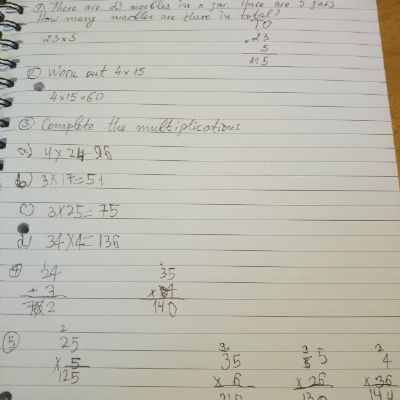 ① There are 23 marbles in a jar. There are 5 jars
How many marbles are there in total?
23x5
10
x 23
5
115
② Work out 4x15
4x15=60
③ Complete the multiplications
a) 4x24=96
b) 3x17=51
c) 3x25= 75
d) 34x4=136
④
1
24
+ 3
2
35
x 4
140
⑤
2
25
x 5
125
3
35
x 6
210
3
5
x 26
130
2
4
x 36
144